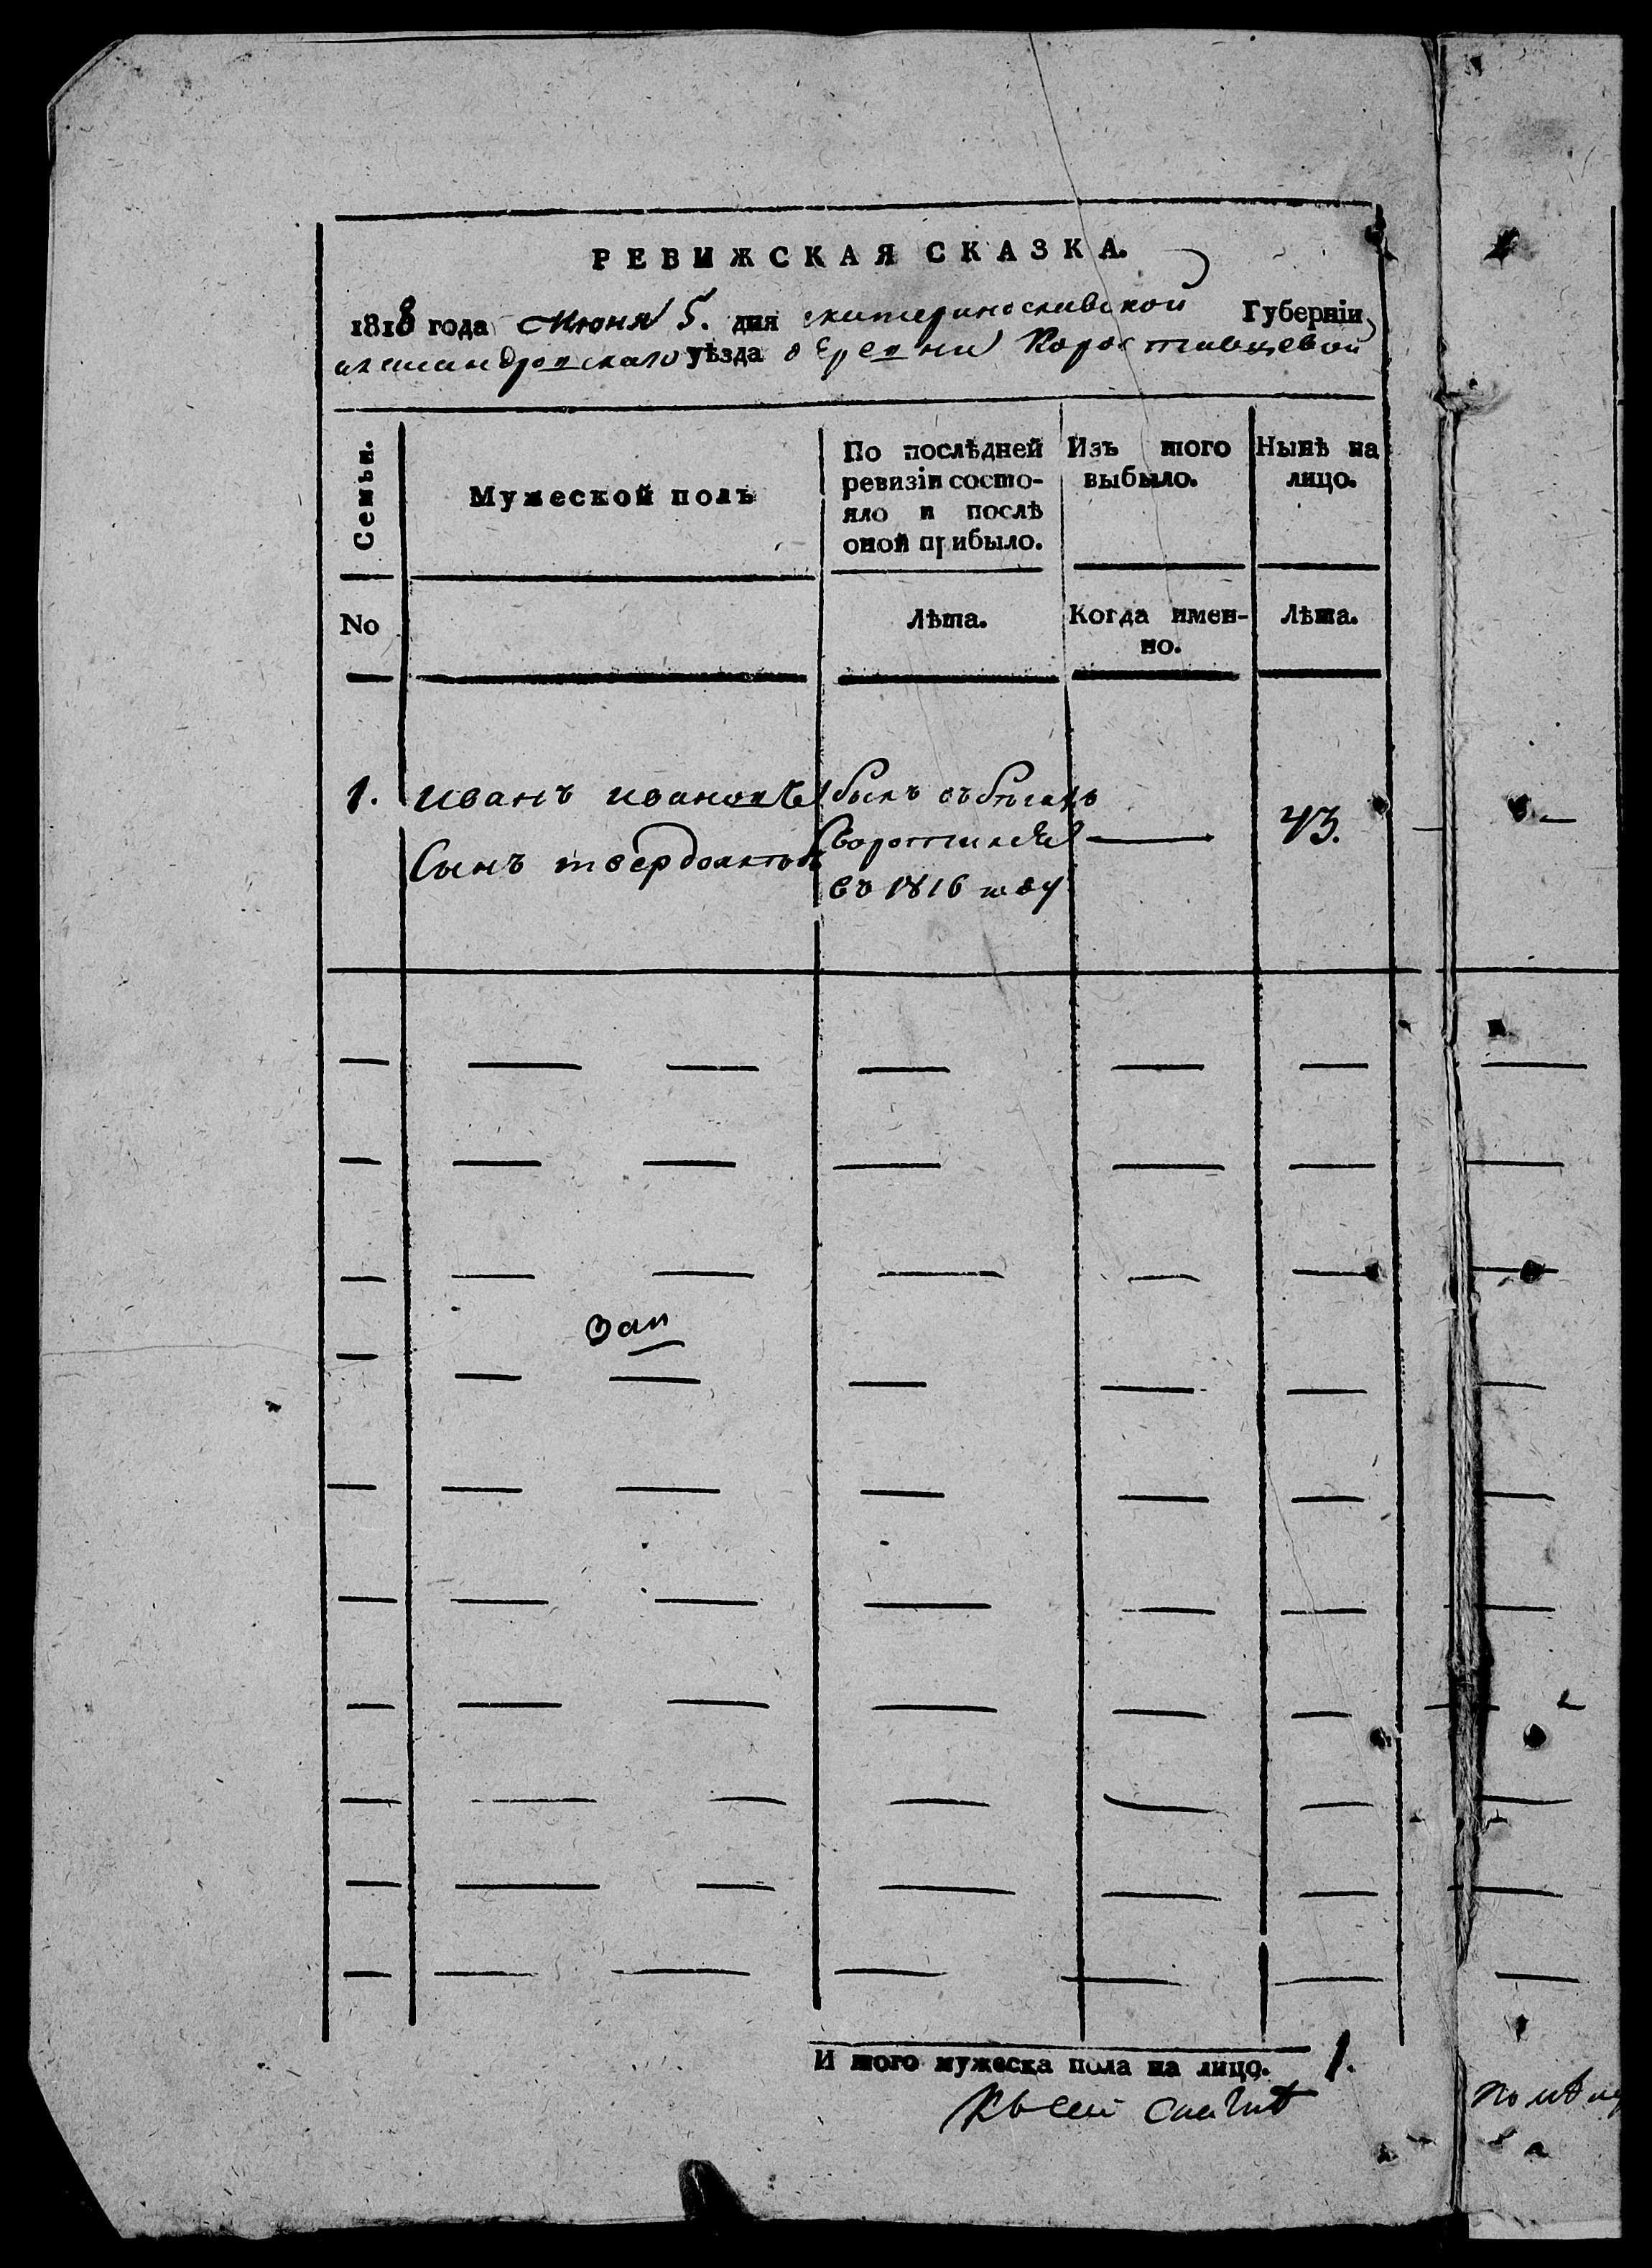 РЕВИЖСКАЯ СКАЗКА.
1818 года Июня 5. дня екатеринославской Губерніи
александровскаго уѣзда деревни Коростовцевой
Семьи.
Мужеской полъ
По послѣдней
ревизіи состо-
яло и послѣ
оной прибыло.
Изъ того
выбыло.
Нынѣ на
лицо.
No
Лѣта.
Когда имен-
но.
Лѣта.
1. иванъ ивановъ былъ въ бегахъ
Сынъ 43.
въ 1816 году
И того мужеска пола на лицо. 1.
Къ сей